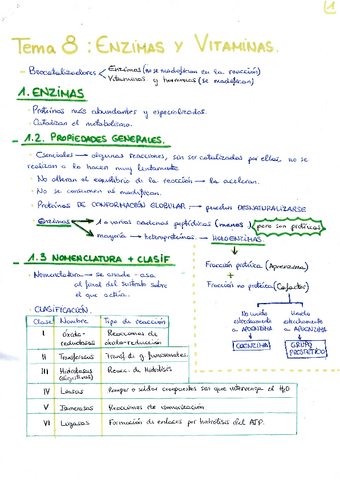 1
Tema 8 : ENZIMAS Y VITAMINAS.
- Biocatalizadores
Enzimas (no se modifican en la reacción)
Vitaminas y hormonas (se modifican)
1. ENZIMAS
- Proteínas más abundantes y especializadas.
- Catalizan el metabolismo.
1.2. PROPIEDADES GENERALES.
- Esenciales → algunas reacciones, sin ser catalizadas por ellas, no se
realizan o lo hacen muy lentamente.
- No alteran el equilibrio de la reacción → la aceleran.
- No se consumen ni modifican.
- Proteínas DE CONFORMACIÓN GLOBULAR → pueden DESNATURALIZARSE
- Enzimas → 1 o varias cadenas peptídicas (menos) pero son proteicas
mayoría → heteroproteínas → HOLOENZIMAS
1.3 NOMENCLATURA + CLASIF
- Nomenclatura → se añade -asa
al final del sustrato sobre
el que actúa.
Fracción proteica (Apoenzima)
+
Fracción no proteica (Cofactor)
No unido
estrechamente
a APOENZIMA
COENZIMA
Unido
estrechamente
a APOENZIMA
GRUPO
PROSTÉTICO
- CLASIFICACIÓN.
Clase Nombre Tipo de reacción
I Óxido-reductasas Reacciones de óxido-reducción
II Transferasas Transf. de g. funcionales.
III Hidrolasas (digestivas) Reacc. de hidrólisis
IV Liasas Romper o soldar compuestos sin que intervenga el H2O
V Isomerasas Reacciones de isomerización
VI Ligasas Formación de enlaces por hidrólisis del ATP.